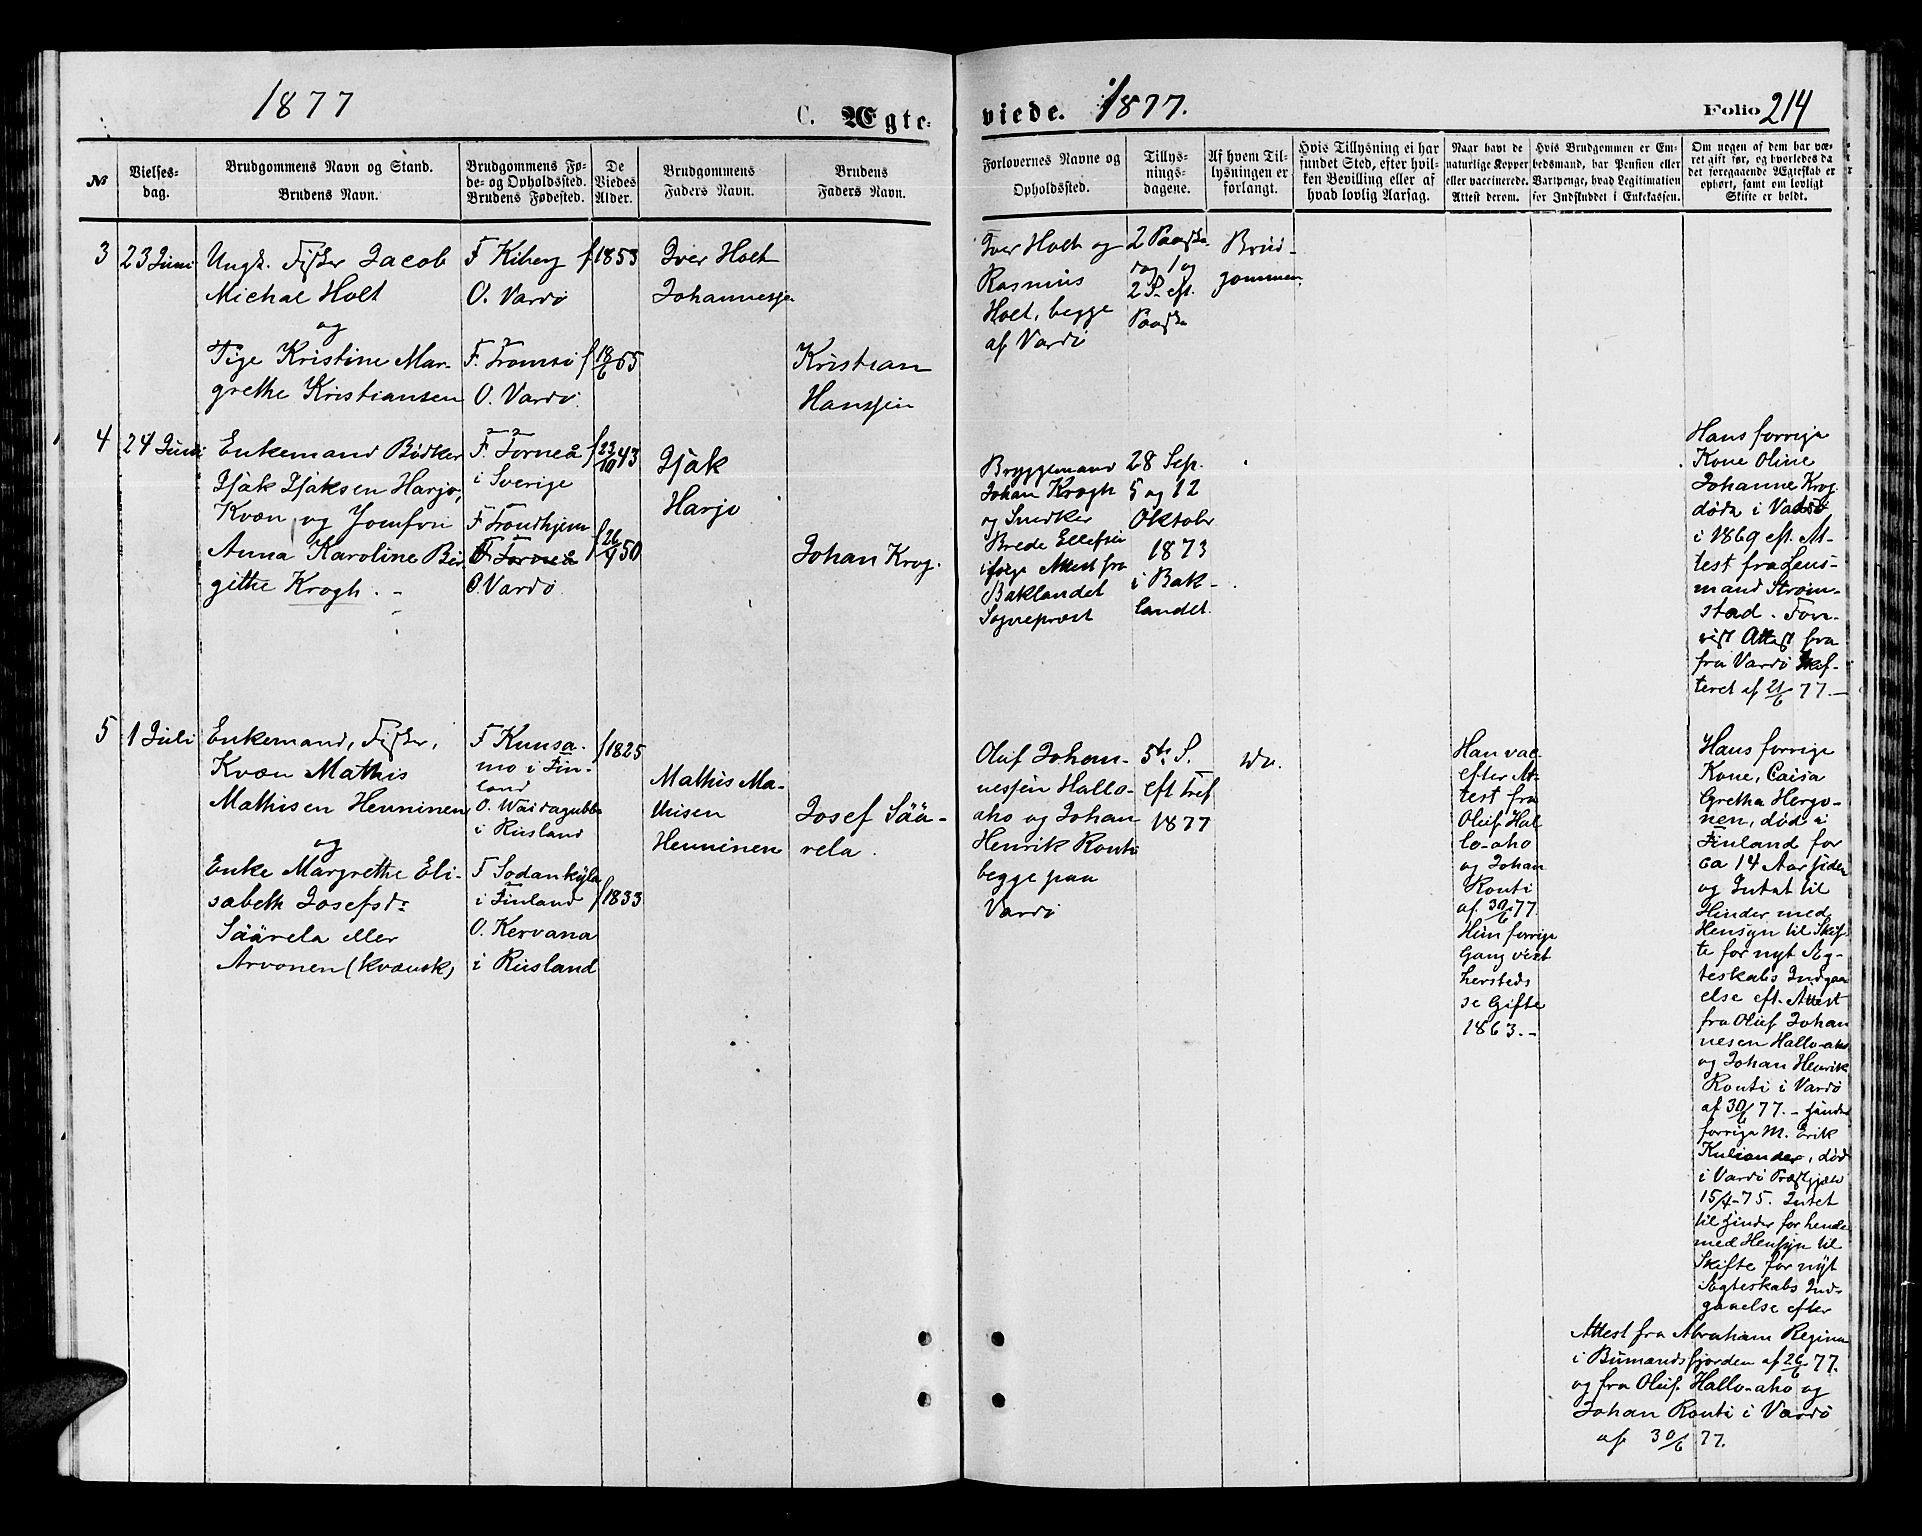 1877
C. Ægte-
viede. 1877.
Folio 214
№
Vielses-
dag.
Brudgommens Navn og Stand.
Brudens Navn.
Brudgommens Fø-
de- og Opholdssted.
Brudens Fødested.
De
Viedes
Alder.
Brudgommens
Faders Navn.
Brudens
Faders Navn.
Forlovernes Navne og
Opholdssted.
Tillys-
nings-
dagene.
Af hvem Til-
lysningen er
forlangt.
Hvis Tillysning ei har
fundet Sted, efter hvil-
ken Bevilling eller af
hvad lovlig Aarsag.
Naar havt de
naturlige Kopper
eller vaccinerede.
Attest derom.
Hvis Brudgommen er Em-
bedsmand, har Pension eller
Vartpenge, hvad Legitimation
for Indskuddet i Enkekassen.
Om nogen af dem har væ-
ret gift før, og hvorledes da
det foregaaende Ægteskab er
ophørt, samt om lovligt
Skifte er holdt.
3
23 Juni
Ungk. Fisker Jacob
Michal Holt
og
Pige Kristine Mar-
grethe Kristiansen
F. Kiberg
O. Vardö
F. Tromsö
O. Vardö
f 1853
f 18/6 55
Iver Holt
Johannessen
Kristian
Hanssen
Iver Holt og
Rasmus
Holt, begge
af Vardö
2 Paaske
dag 1 og
2 S. eft.
Paaske
Brud-
gommen.
4
24 Juni
Enkemand Bødker
Isak Isaksen Harjo,
Kvæn og Jomfru
Anna Karoline Bir
githe Krogh. -
F. Torneå
i Sverige
F. Trondhjem
F. Torneå
O. Vardö
f 23/10 43
f 26/9 50
Isak
Harjo
Johan Krog.
Bryggemand
Johan Krogh
og Snedker
Brede Ellefsen
ifølge Attest fra
Baklandet
Sognepræst
28 Sep.
5 og 12
Oktobr
1873
i Bak-
landet.
Hans forrige
Kone Oline
Johanne Krog
døde i Vadsö
i 1869 eft. At-
test fra Lens-
mand Strøm-
stad. For-
vist Attest fra
fra Vardö Skif-
teret af 21/6 77.-
5
1 Juli
Enkemand, Fisker,
Kvæn Mathis
Mathisen Henninen
og
Enke Margrethe Eli-
sabeth Josefsdr
Säärela eller
Arvonen (kvænsk)
F Kuusa-
mo i Fin-
land
O. Waidagubba
i Rusland
F Sodankylä
i Finland
O. Kervana
i Rusland
f 1825
f 1833
Mathis Ma-
thisen
Henninen
Josef Sää-
rela.
Oluf Johan-
nessen Hallo-
aho og Johan
Henrik Ronti
begge paa
Vardö
5te S.
eft Tref
1877
Do.
Han vac
efter At-
test fra
Oluf Hal
lo-aho
og Johan
Ronti
af 30/6 77
Hun forrige
Gang viet
hersteds
se Gifte
1863.-
Hans forrige
Kone, Caisa
Gretha Hergo-
nen, død i
Finland for
ca 14 Aar siden
og Intet til
Hinder med
Hensyn til Skif
te for nyt Æg-
teskabs Indgaa
else eft. Attest
fra Oluf Johan
nesen Hallo-aho
og Johan Henrik
Ronti i Vardö
af 30/6 77. -
forrige M. Erik
død
i Vardö Præstgjæld
15/4-75. Intet
til Hinder for hende
med Hensyn til
Skifte for nyt
Ægteskabs Ind-
gaaelse efter
Attest fra Abraham Regina
i Bumandsfjorden af 26/6 77.
og fra Oluf Hallo-aho og
Johan Ronti i Vardö
af 30/6 77.